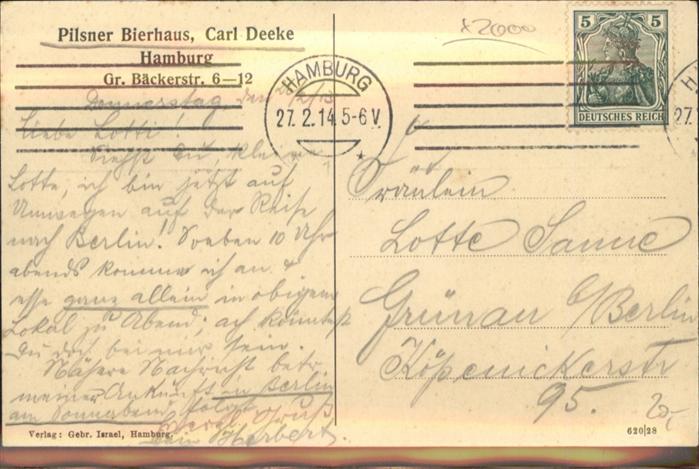 Pilsner Bierhaus, Carl Deeke
Hamburg
Gr. Bäckerstr. 6—12
x2000
5 5
DEUTSCHES REICH
HAMBURG
27.2.14. 5-6 V
27.
Donnerstag, den
Liebe Lotti!
Siehst Du, kleine
Lotte, ich bin jetzt auf
Umwegen auf der Reise
nach Berlin! Soeben 10 Uhr
abends komme ich an &
esse ganz allein in obigem
Lokal zu Abend; ach könntest
Du doch bei mir sein.
Nähere Nachricht betr.
meiner Ankunft in Berlin
am Sonnabend folgt.
Gruß
Dein Herbert.
Fräulein
Lotte
Grünau b/Berlin
Köpenickerstr
95.
20,-
Verlag: Gebr. Israel, Hamburg.
620|28